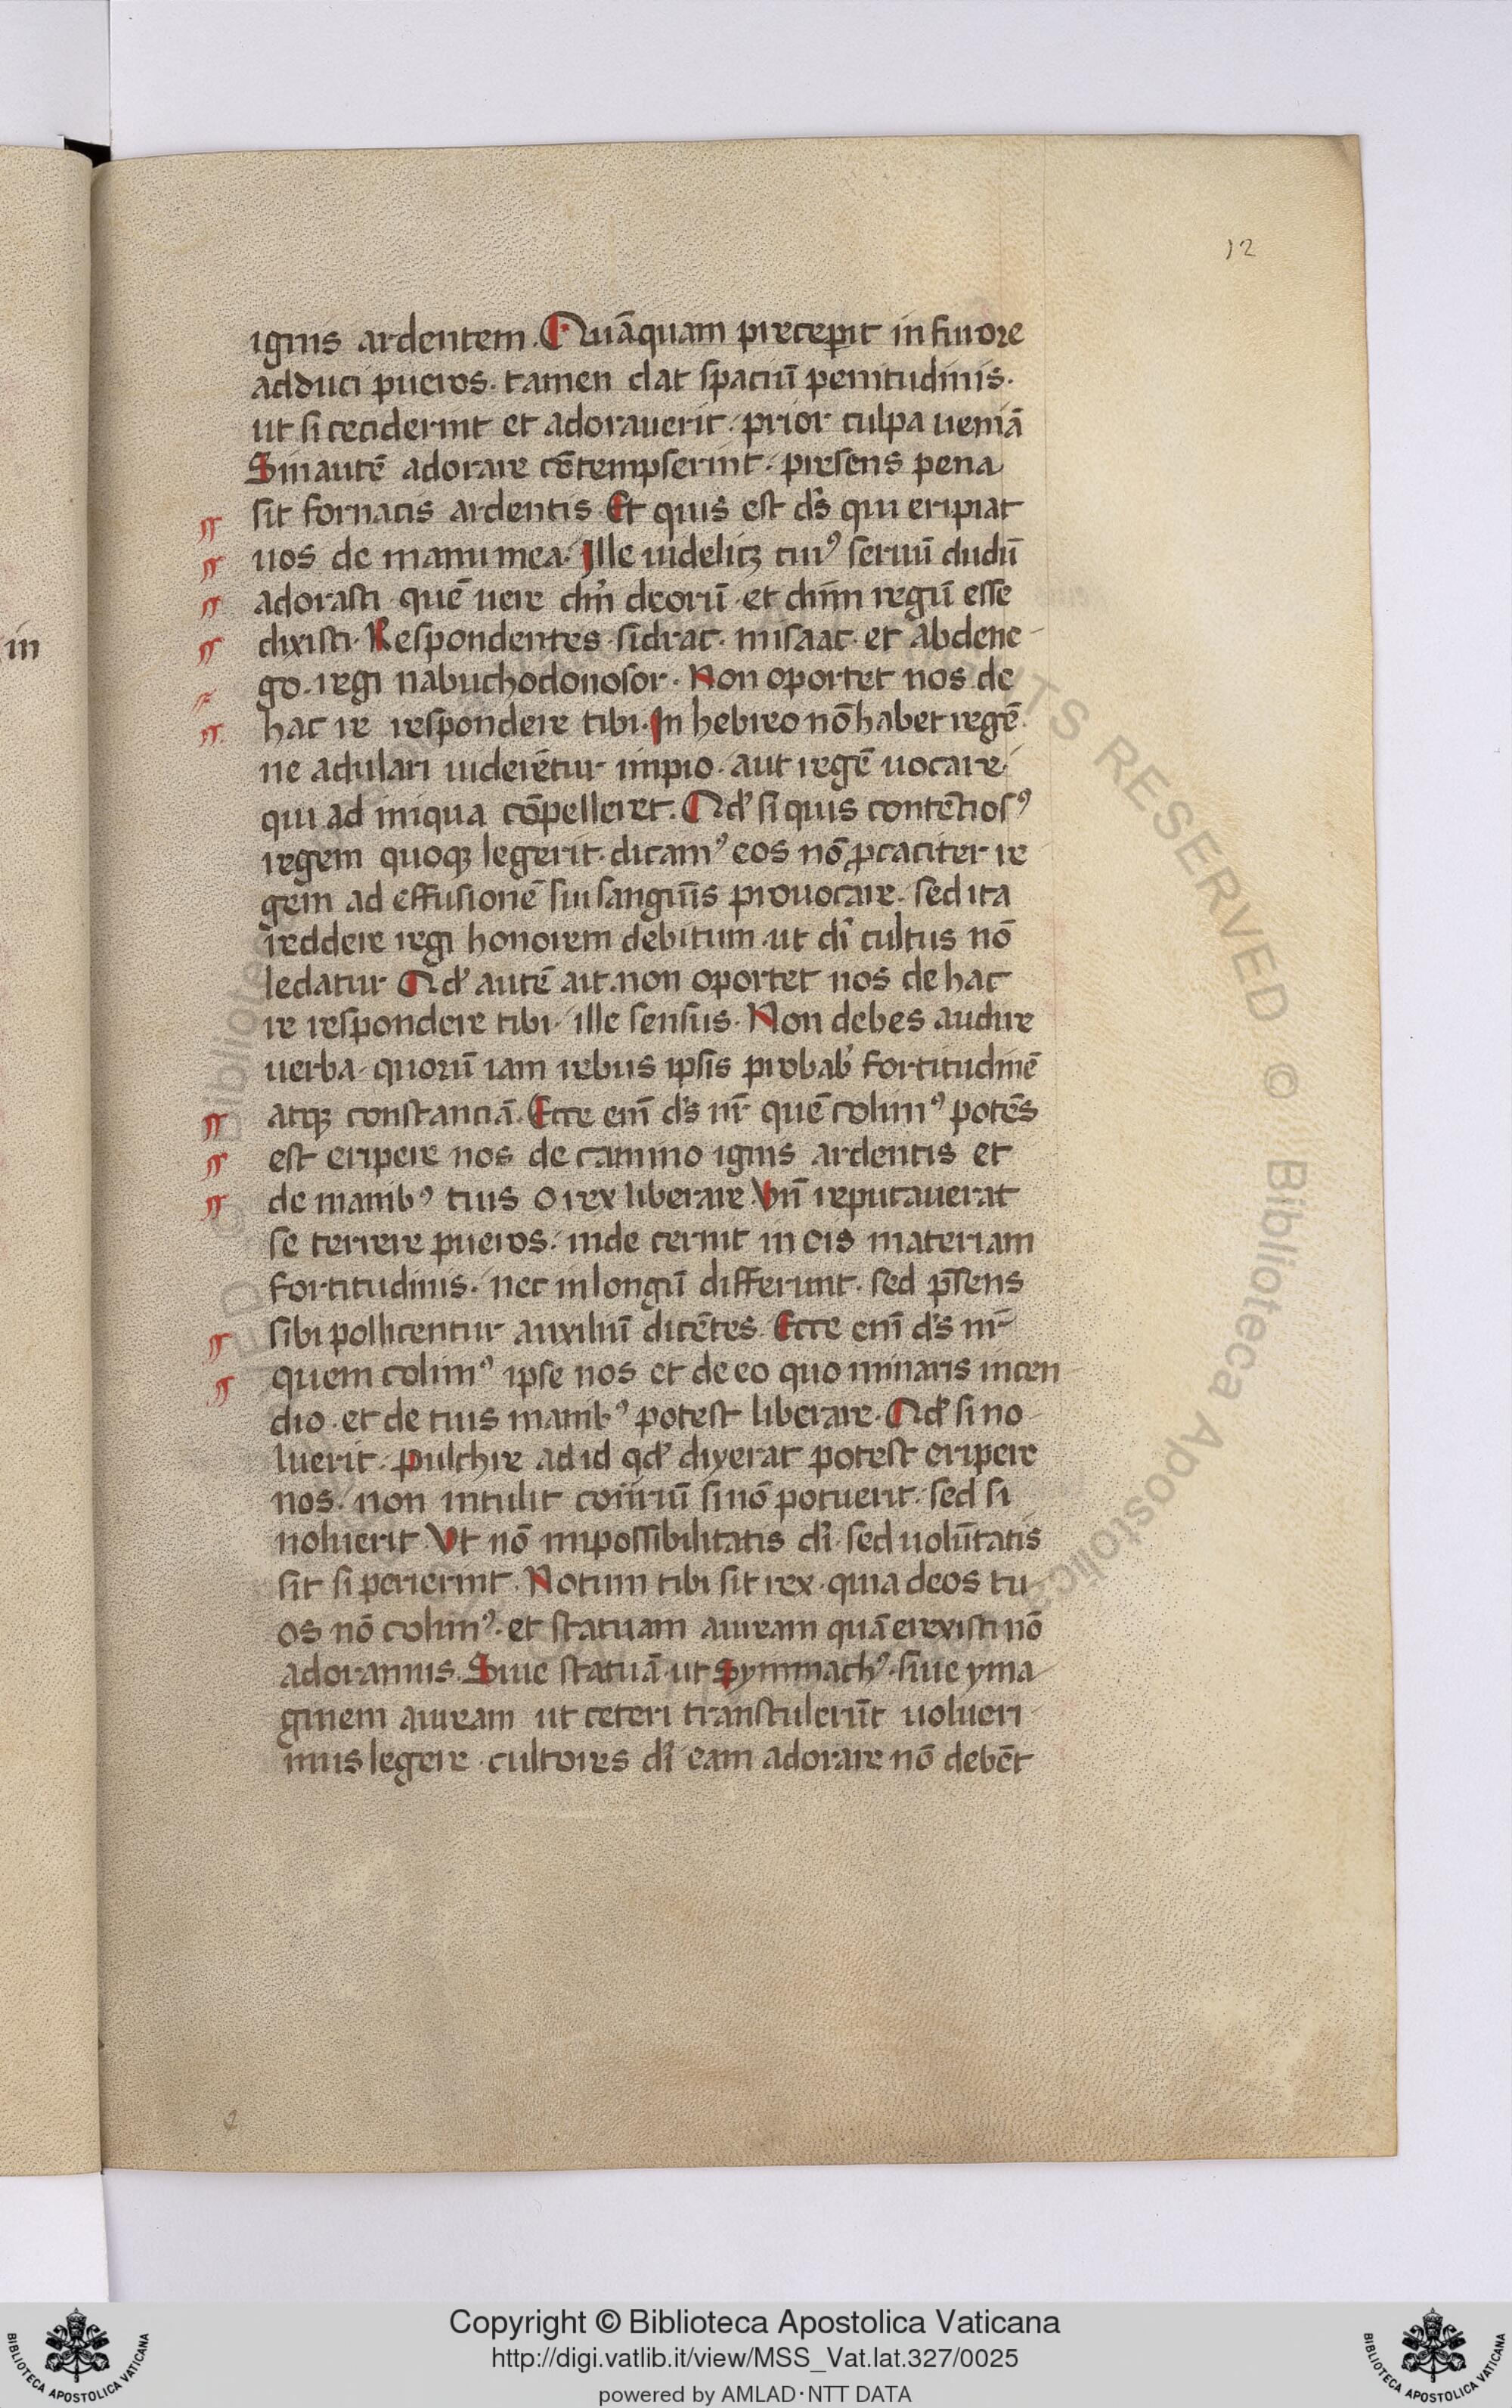 12
ignis ardentem. Quāquam precepit in furore
adduci pueros. tamen dat spaciū penitudinis.
ut si ceciderint et adorauerit. prior culpa ueniā
Sin autē adorare cōtempserint. presens pena
sit fornacis ardentis. Et quis est ds qui eripiat
uos de manu mea. Ille uidelicꝫ cuiꝰ seruū dudū
adorasti quē uere dm̄ deorū et dnm̄ regū esse
dixisti. Respondentes sidrac. misaac. et abdene-
in
go. regi nabuchodonosor. Non oportet nos de
hac re respondere tibi. In hebreo nō habet regē.
ne adulari uiderētur impio. aut regē uocare
qui ad iniqua cōpelleret. Qđ si quis contētiosꝰ
regem quoqꝫ legerit. dicamꝰ eos nō ꝓcaciter re
gem ad effusionē sui sanguīs prouocare. sed ita
reddere regi honorem debitum ut dī cultus nō
ledatur Qđ autē ait. non oportet nos de hac
re respondere tibi. ille sensus. Non debes audire
uerba quorū iam rebus ipsis probab' fortitudinē
atqꝫ constanciā. Ecce enī ds nr̄ quē colimꝰ potēs
est eripere nos de camino ignis ardentis et
de manibꝰ tuis o rex liberare Vn̄ reputauerat
se terrere pueros. inde cernit in eis materiam
fortitudinis. nec in longū differunt. sed p̄sens
sibi pollicentur auxiliū dicētes. Ecce enī ds nr̄
quem colimꝰ ipse nos et de eo quo minaris incen
dio. et de tuis manibꝰ potest liberare. Qđ si no
luerit. pulchre ad id qđ dixerat potest eripere
nos. non intulit cōriū si nō potuerit. sed si
noluerit Vt nō impossibilitatis dī. sed uolūtatis
sit si perierint. Notum tibi sit rex. quia deos tu
os nō colimꝰ. et statuam auream quā erexisti nō
adoramus. Siue statuā ut Symmachꝰ. siue yma
ginem auream ut ceteri transtulerūt uolueri
mus legere. cultores dī eam adorare nō debēt
Copyright © Biblioteca Apostolica Vaticana
http://digi.vatlib.it/view/MSS_Vat.lat.327/0025
powered by AMLAD·NTT DATA